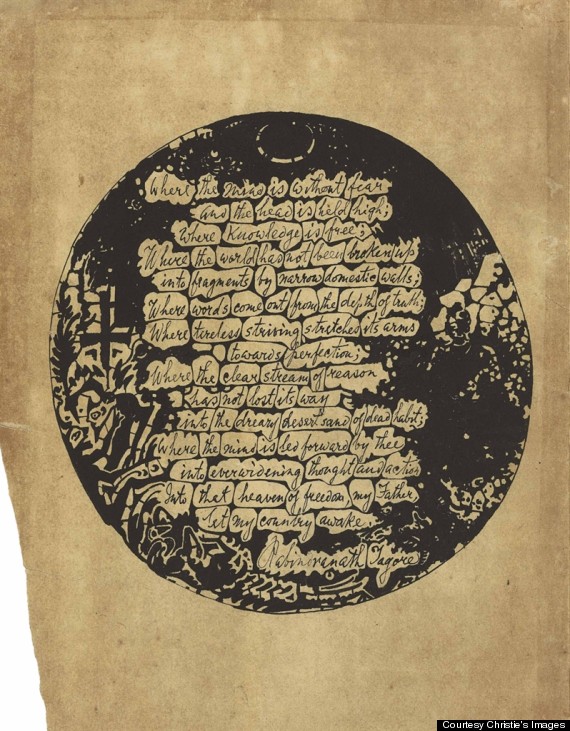 Where the mind is without fear
and the head is held high;
Where knowledge is free;
Where the world has not been broken up
into fragments by narrow domestic walls;
Where words come out from the depth of truth;
Where tireless striving stretches its arms
towards perfection;
Where the clear stream of reason
has not lost its way
into the dreary desert sand of dead habit;
Where the mind is led forward by thee
into everwidening thought and action
Into that heaven of freedom, my Father,
let my country awake.
Rabindranath Tagore
Courtesy Christie's Images